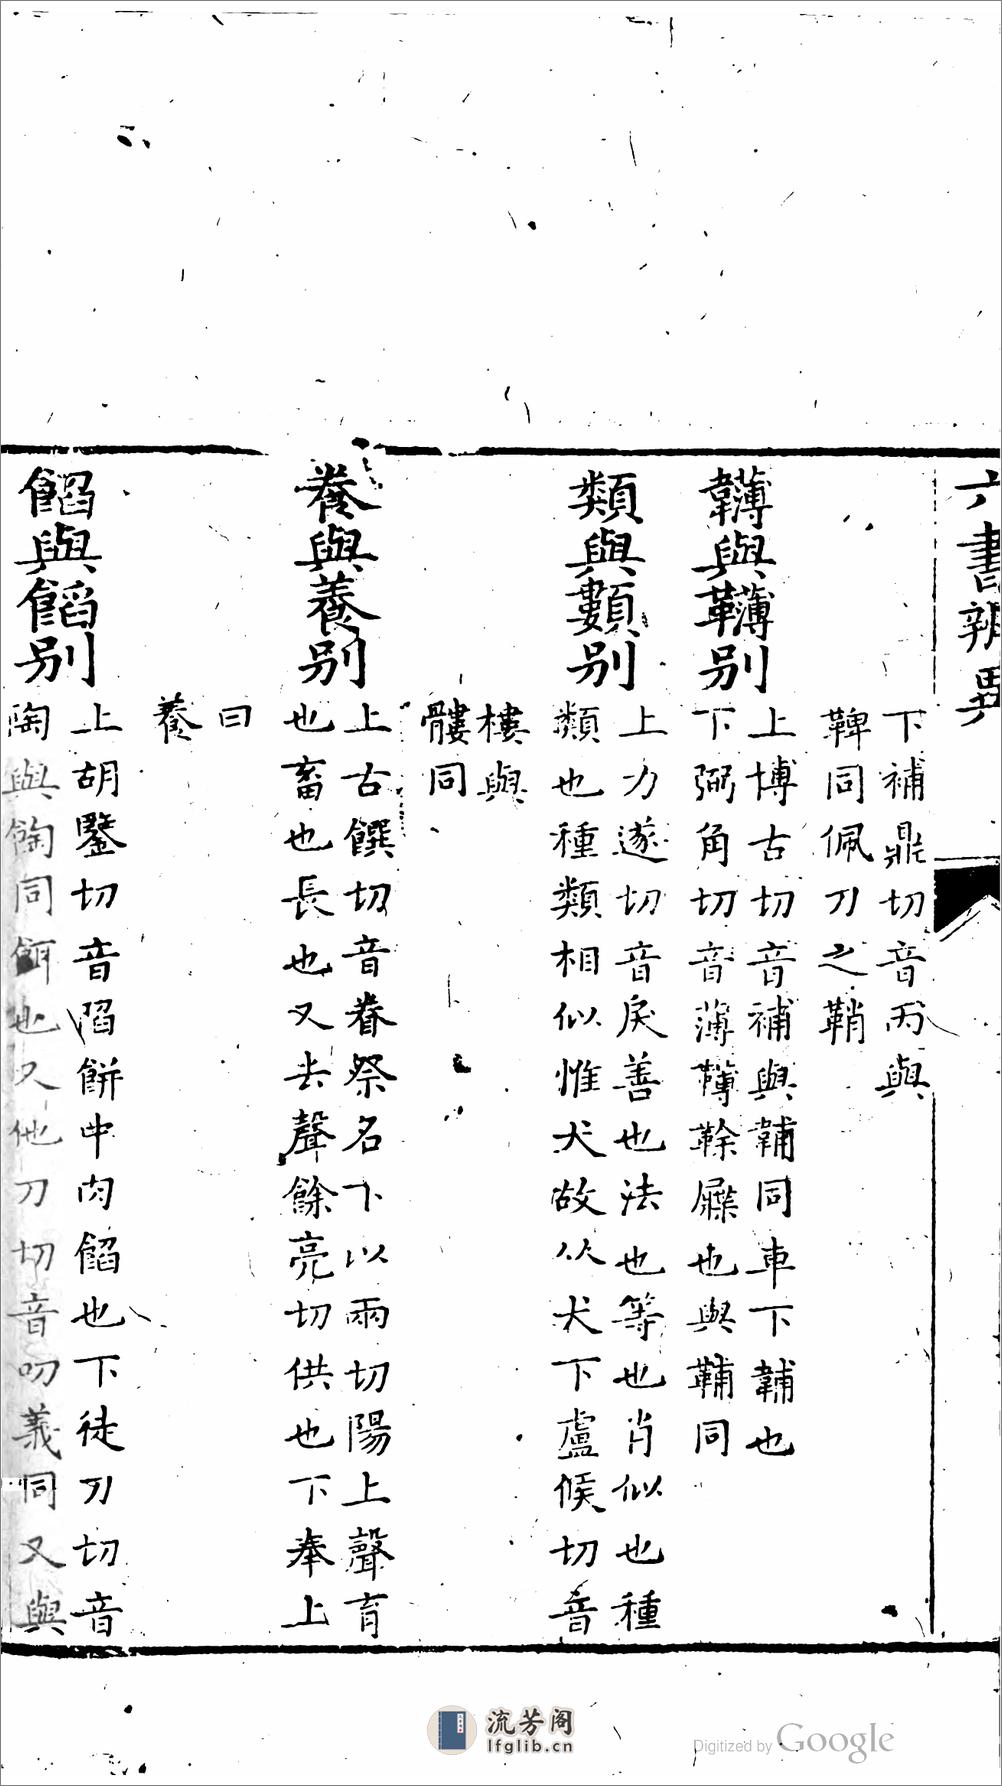 六書辨異
下補鼎切音丙與
鞞同佩刀之鞘
韛與鞴別
上博古切音補與韛同車下韛也
下弼角切音薄鞴䩣屧也與鞴同
類與䫫別
上力遂切音戾善也法也等也肖似也種
類也種類相似惟犬故从犬下盧候切音
樓與
髏同
餋與養別
上古饌切音眷祭名下以兩切陽上聲育
也畜也長也又去聲餘亮切供也下奉上
曰
養
餡與饀別
上胡鑒切音陷餅中肉餡也下徒刀切音
陶與䬞同餌也又他刀切音叨義同又與
流芳阁
lfglib.cn
Digitized by Google